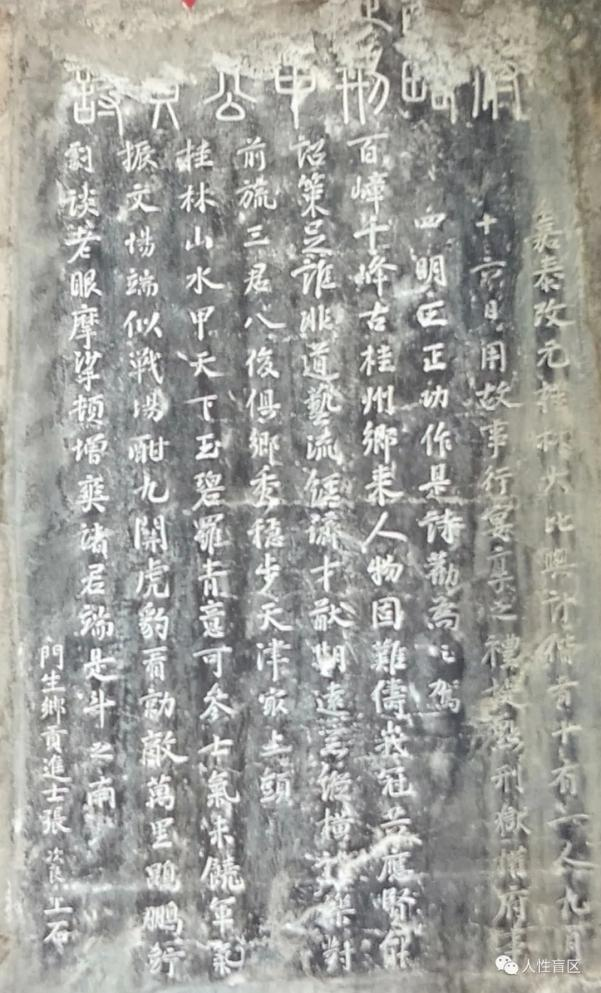 略刑公
嘉泰改元桂林大比與計偕者十有一人九月
十六日用故事行宴享之禮提點刑獄權府事
四明王正功作是詩勸為之駕
百嶂千峰古桂州鄉來人物固難儔峨冠共應賢能
詔策足誰非道藝流經濟才猷期遠器縱橫禮樂對
前旒三君八俊俱鄉秀穩步天津最上頭
桂林山水甲天下玉碧羅青意可參士氣未饒軍氣
振文場端似戰場酣九關虎豹看勍敵萬里鵾鵬佇
劇談老眼摩挲頓增爽諸君端是斗之南
門生鄉貢進士張次良上石
人性盲区